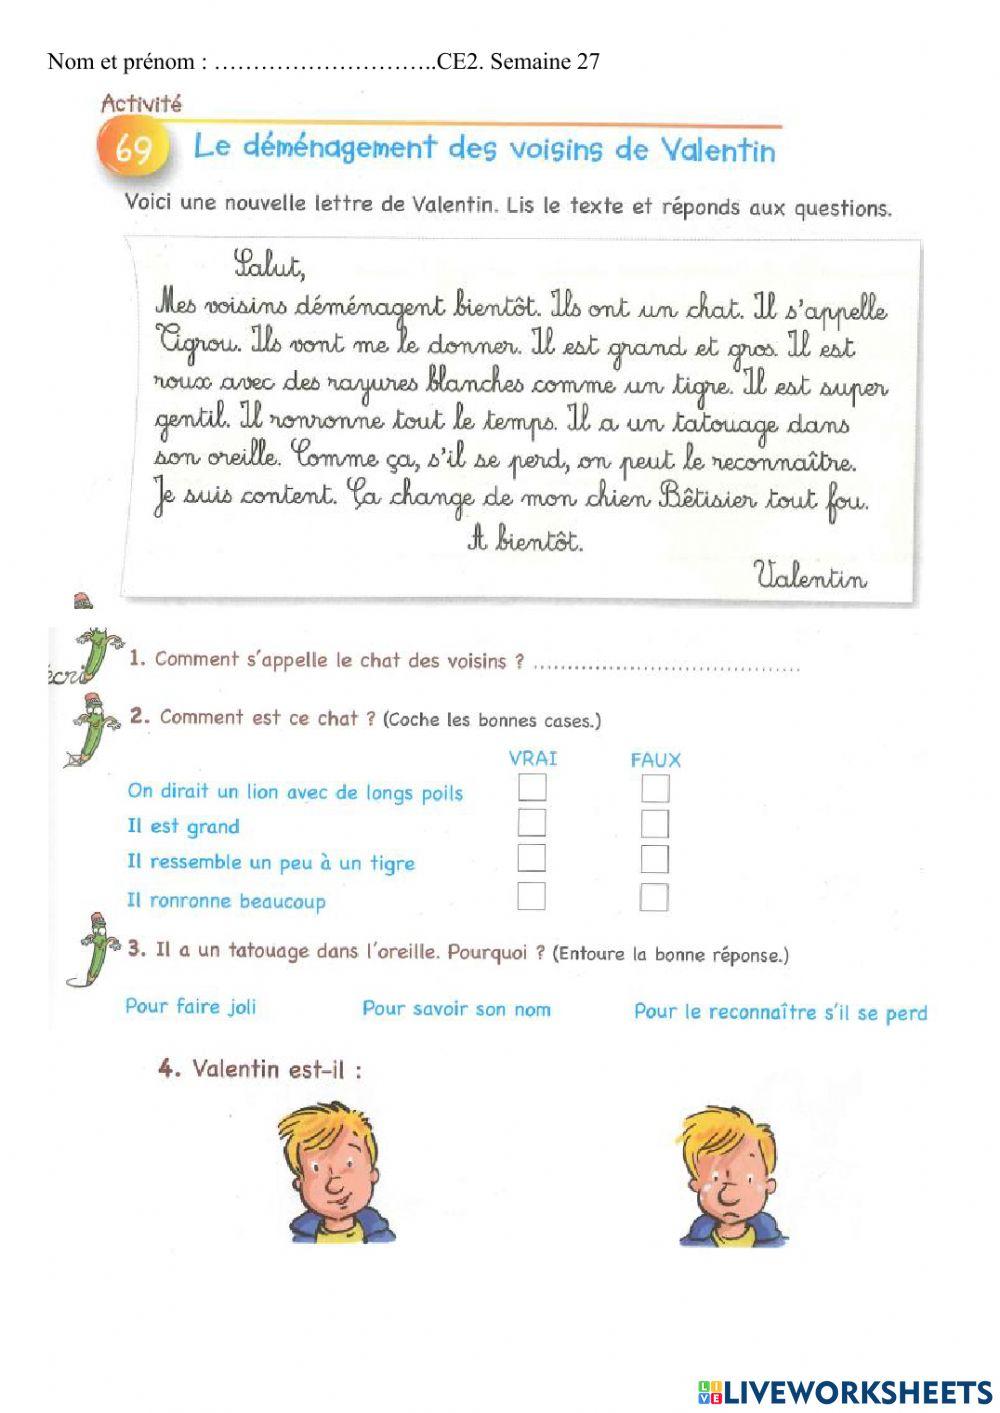 Nom et prénom : ………………………..CE2. Semaine 27
Activité
69 Le déménagement des voisins de Valentin
Voici une nouvelle lettre de Valentin. Lis le texte et réponds aux questions.
Salut,
Mes voisins déménagent bientôt. Ils ont un chat. Il s'appelle
Tigrou. Ils vont me le donner. Il est grand et gros. Il est
roux avec des rayures blanches comme un tigre. Il est super
gentil. Il ronronne tout le temps. Il a un tatouage dans
son oreille. Comme ça, s'il se perd, on peut le reconnaître.
Je suis content. Ça change de mon chien Bêtisier tout fou.
A bientôt.
Valentin
écri
1. Comment s'appelle le chat des voisins ? ......................................
2. Comment est ce chat ? (Coche les bonnes cases.)
VRAI FAUX
On dirait un lion avec de longs poils
Il est grand
Il ressemble un peu à un tigre
Il ronronne beaucoup
3. Il a un tatouage dans l'oreille. Pourquoi ? (Entoure la bonne réponse.)
Pour faire joli Pour savoir son nom Pour le reconnaître s'il se perd
4. Valentin est-il :
LIVE LIVEWORKSHEETS